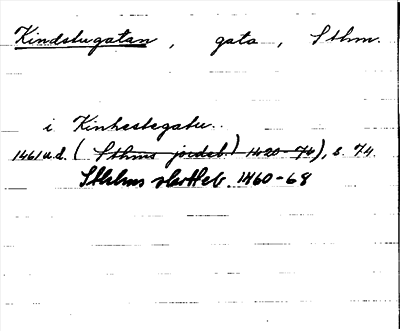 Kindstugatan, gata, Sthm.
i Kinhestegatu.
1461 u.d. (Sthms jordeb. 1420-74), s. 74
Sthlms skotteb. 1460-68